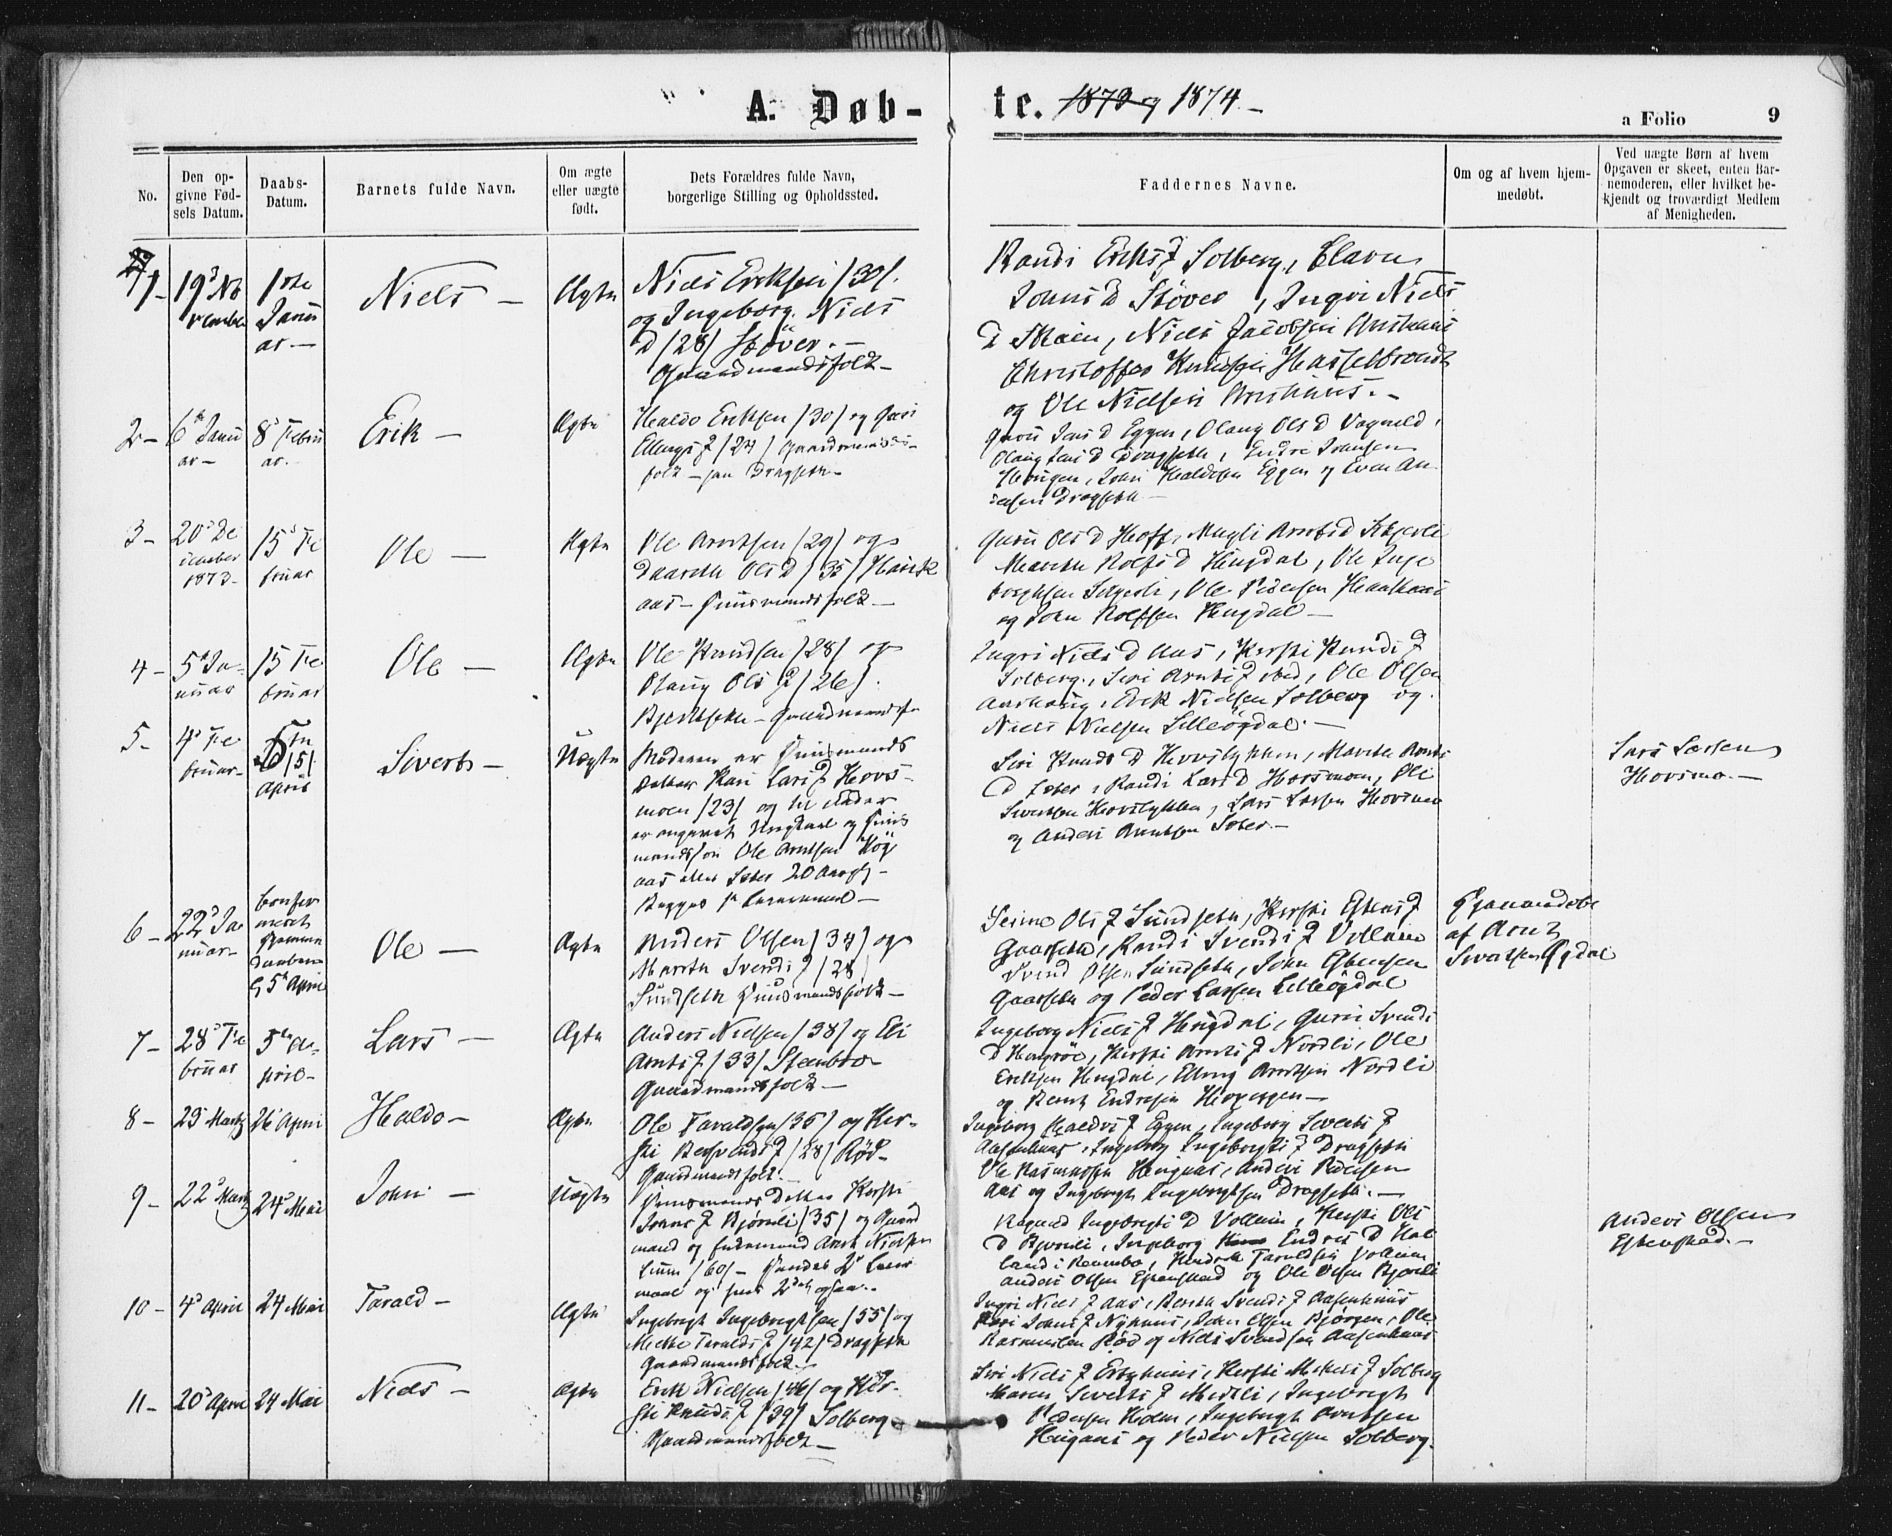 A. Døb-
te. 1873 og 1874.-
a Folio 9
No.
Den op-
givne Fød-
sels Datum.
Daabs-
Datum.
Barnets fulde Navn.
Om ægte
eller uægte
født.
Dets Forældres fulde Navn,
borgerlige Stilling og Opholdssted.
Faddernes Navne.
Om og af hvem hjem-
medøbt.
Ved uægte Børn af hvem
Opgaven er skeet, enten Bar-
nemoderen, eller hvilket be-
kjendt og troværdigt Medlem
af Menigheden.
1-
19d No
vember
1ste
Janu
ar.-
Niels -
Ægte
Niels Eriksen /30/.
og Ingeborg Niels
D /28/ Støver.-
Gaardmandsfolk-
Randi Eriks D Solberg,
Johns D Støver, Ingri Niels
D Moen, Niels Jacobsen
Christoffer Knudsen Hasselbrandt
og Ole Nielsen
2-
6te Janu
ar-
8de Febru
ar.-
Erik -
Ægte
Haldo Eriksen /30/ og Guri
Ellings D /27/ Gaardmands-
folk - Dragseth-
Guru Jens D Eggen, Olaug Ols D
Olaug Jens D Dragseth, Endre Johnsen
Haugen, John Haldosen Eggen og Even An
Dragseth -
3-
20de De
cember
1873-
15de Fe
bruar
Ole -
Ægte
Ole Arntsen /29/ og
Ols D /35/
aas - Huusmandsfolk -
Guru Ols D Hoff, Magli Arnts D
Marith Rolfs D Hugdal, Ole Inge
brigtsen Solgjerde, Ole Pedersen
og John Rolfsen Hugdal -
4-
5te Ja-
nuar
15 Fe
bruar
Ole -
Ægte
Ole Knudsen /28/ og
Olaug Ols D /26/.
- Gaardmandsfo
Ingri Niels D Aas, Kersti Knuds D
Solberg, Siri Arnts D ibid, Ole Olsen
Aashaug, Erik Nielsen Solberg og
Niels Nielsen Lilleøgdal.-
5-
4de Fe
bruar-
5te
/5/
April
Sivert -
Uægte
Moderen er Huusmands
Datter Kari Lars D Hovs-
moen /23/ og til Fader
er angivet Ungkarl og Huus
mandssøn Ole Arntsen Høg
aas eller Sæter 20 Aar
Begges 1ste Leiermaal -
Siri Knuds D Hovslykken, Marith Arnts
D Sæter, Randi Lars D Hovsmoen, Ole
Sivertsen Hovslykken, Lars Larsen Hovsmoen
og Anders Arntsen Sæter.-
Lars Larsen
Hovsmo.-
6-
22de Ja
nuar-
Confir
meret
Hjemme
daaben
5te April
Ole -
Ægte
Anders Olsen /34/ og
Marith Svends D /28/
Sundseth Huusmandsfolk -
Ols D Sundseth, Kersti Estens D
Gaarseth, Randi Svends D Volleim
Svend Olsen Sundseth, John Estensen
Gaarseth og Peder Larsen Lilleøgdal
Hjemmedøbt
af Arnt
Sivertsen Øgdal
7-
28de Fe
bruar
5te A-
pril-
Lars -
Ægte
Anders Nielsen /38/ og Eli
Arnts D /33/ Steenbro
Gaardmandsfolk -
Ingeborg Niels D Hugdal, Guru Svends
D Haugrøe, Kersti Arnts D Nordli, Ole
Eriksen Hugdal, Elling Arntsen Nordli
og Bernt Endresen -
8-
29de Marts
26 April
Haldo -
Ægte
Ole Taraldsen /36/ og Ker-
sti D /28/ Rød-
Gaardmandsfolk.-
Ingeborg Haldos D Eggen, Ingeborg Siverts D
Aasenhuus, Ingeborg Ingebrigts D Dragseth
Ole Rasmussen Haugaas, Anders
Aas og Ingebrigt Ingebrigtsen Dragseth.-
9-
22de Marts
24de Mai
John -
Uægte
Huusmands Datter Kersti
Johns D Bjørnli /35/ og Gaard
mand og Enkemand Arnt Nielsen
/60/ - Hendes 2det Leier
maal og hans 2det ogsaa.-
Ragnild Ingebrigts D Volleim, Kersti Ols
D Bjørnli, Ingeborg Endres D
Taraldsen Volleim
Anders Olsen Estenstad og Ole Olsen Bjørnli
Anders Olsen
Estenstad.-
10-
4de April
24 Mai
Tarald -
Ægte
Ingebrigt Ingebrigtsen /55/ og
Mette Taralds D /42/ Dragseth
Gaardmandsfolk.-
Ingri Niels D Aas, Berith Svends D Aasenhuus
Johns D Nyhuus, John Olsen Bjørgen, Ole
Rasmussen Rød og Niels Svendsen Aasenhuus
11-
20de April
24 Mai
Niels -
Ægte
Erik Nielsen /46/ og Ker-
sti Knuds D /39/ Solberg
Gaardmandsfolk -
Siri Niels D, Kersti Mikels D Solberg
Maren Siverts D, Ingebrigt
Pedersen Holm, Ingebrigt Arntsen
Haugaas og Peder Nielsen Solberg.